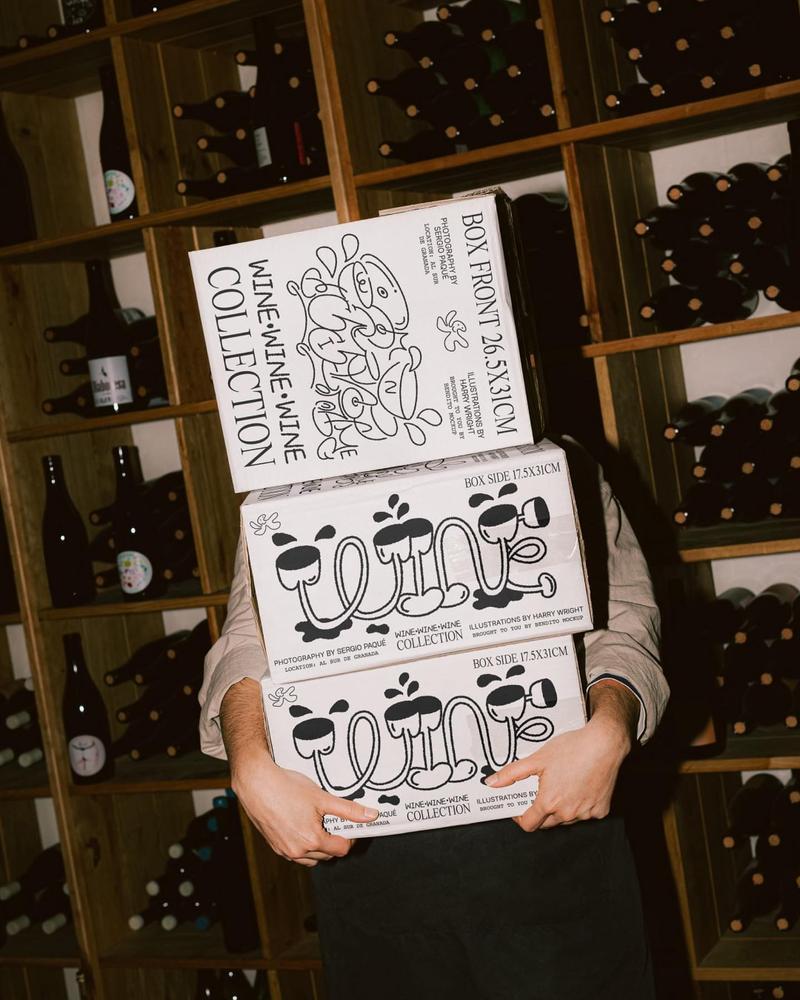 BOX FRONT 26.5X31CM
PHOTOGRAPHY BY
SERGIO PAQUÉ
LOCATION: AL SUR
DE GRANADA
ILLUSTRATIONS BY
HARRY WRIGHT
BROUGHT TO YOU BY
BENDITO MOCKUP
WINE•WINE•WINE
COLLECTION
BOX SIDE 17.5X31CM
wine
PHOTOGRAPHY BY SERGIO PAQUÉ
LOCATION: AL SUR DE GRANADA
WINE•WINE•WINE
COLLECTION
ILLUSTRATIONS BY HARRY WRIGHT
BROUGHT TO YOU BY BENDITO MOCKUP
BOX SIDE 17.5X31CM
wine
PAQUÉ
AL SUR DE GRANADA
WINE•WINE•WINE
COLLECTION
ILLUSTRATIONS BY
BROUGHT TO YOU